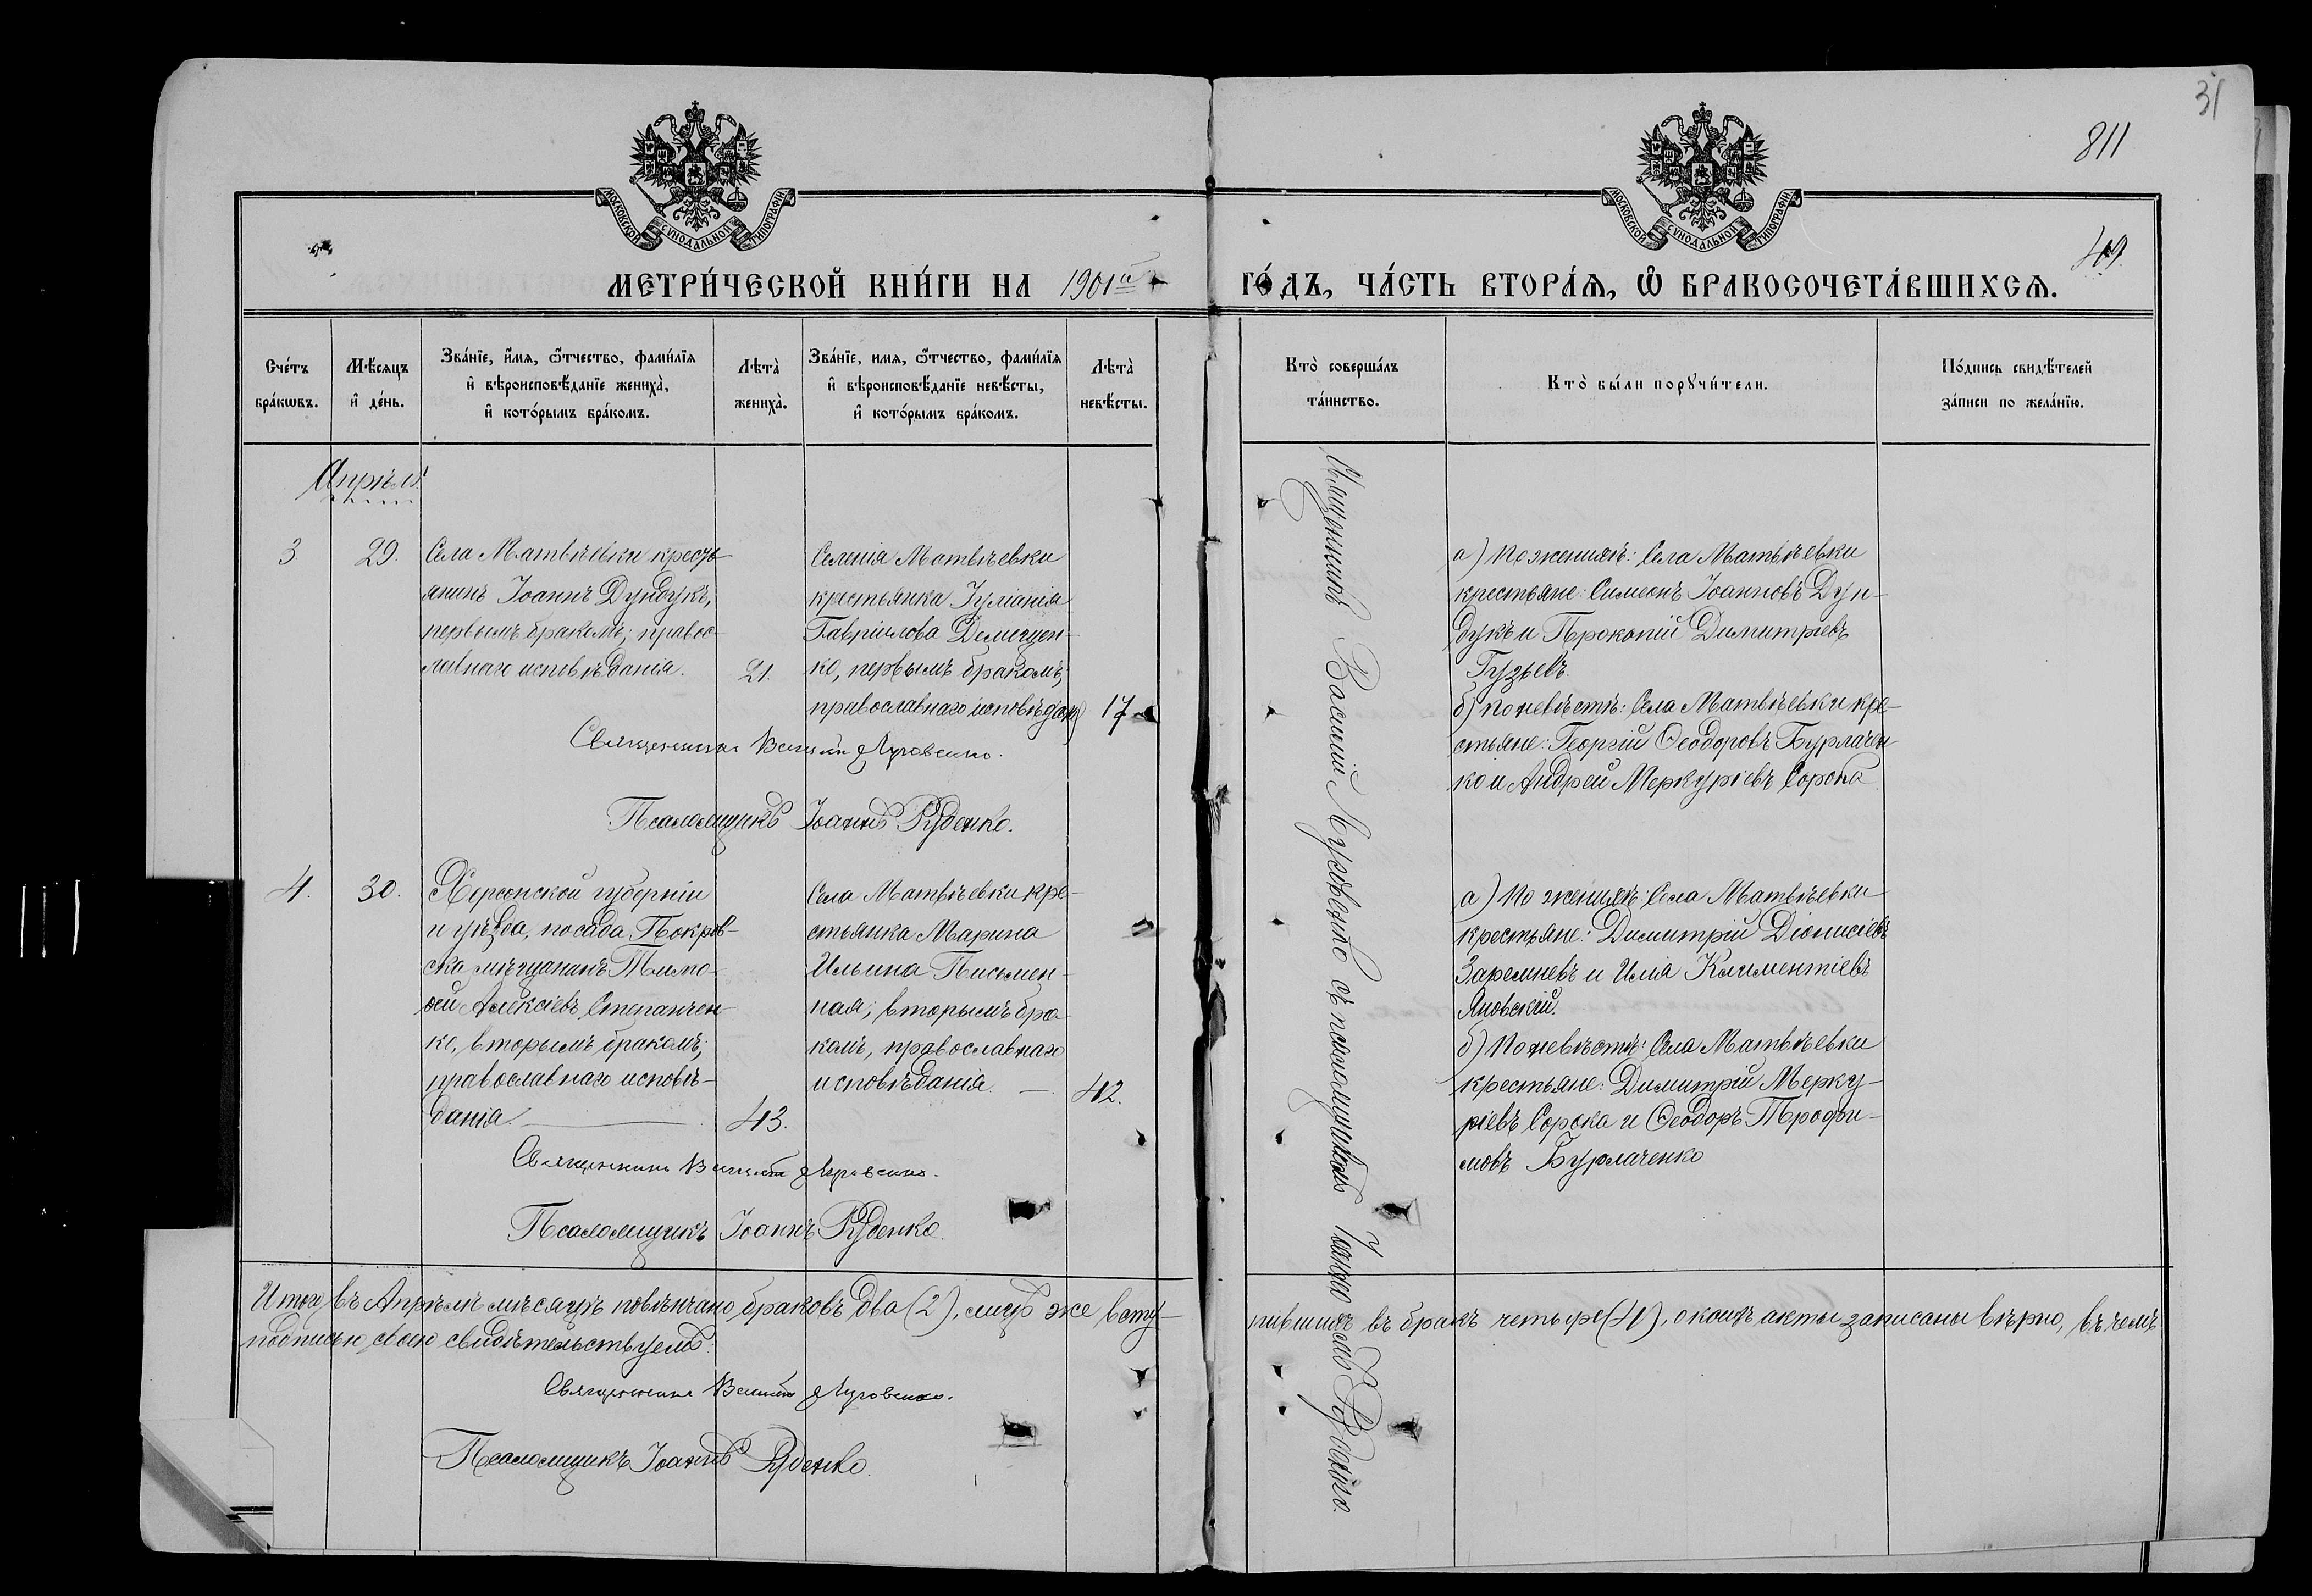 31
811
409
МОСКОВСКОЙ СѴНОДАЛЬНОЙ ТИПОГРАФІИ
МОСКОВСКОЙ СѴНОДАЛЬНОЙ ТИПОГРАФІИ
МЕТРИ́ЧЕСКОЙ КНИ́ГИ НА 1901й ГО́ДЪ, ЧА́СТЬ ВТОРА́Ѧ, Ѡ БРАКОСОЧЕТА́ВШИХСѦ.
Сче́тъ
бра́кѡвъ.
Мѣ́сяцъ
и҆ де́нь.
Зва́нїе, и҆́мя, ѻ҆́тчество, фами́лїя
и҆ вѣроисповѣ́данїе жениха̀,
и҆ кото́рымъ бра́комъ.
Лѣта̀
жениха̀.
Зва́нїе, имя, ѻ҆́тчество, фами́лїя
и҆ вѣроисповѣ́данїе невѣ́сты,
и҆ кото́рымъ бра́комъ.
Лѣта̀
невѣ́сты.
Кто̀ соверша́лъ
та́инство.
Кто̀ бы́ли порꙋчи́тели.
По́дпись свидѣ́телей
за́писи по жела́нїю.
Апрѣль
3
29.
Села Матвѣевки кресть
янинъ Іоаннъ Дундукъ,
первымъ бракомъ; правос-
лавнаго исповѣданія.
21.
Селенія Матвѣевки
крестьянка Іуліанія
Гавріилова Демещен-
ко, первымъ бракомъ;
православнаго исповѣдан
17
Священникъ Василій Луговенко.
Псаломщикъ Іоаннъ Руденко.
Священникъ Василій Луговенко съ псаломщикомъ Іоанномъ Руденко.
а) По женихѣ: Села Матвѣевки
крестьяне: Симеонъ Іоанновъ Дун-
дукъ и Прокопій Димитріевъ
Гузьевъ.
б) По невѣстѣ: Села Матвѣевки кре-
стьяне: Георгій Ѳеодоровъ Бурлачен
ко и Андрей Меркуріевъ Сорока
4.
30.
Херсонской губерніи
и уѣзда, посада Покров-
ска мѣщанинъ Тимо-
ѳей Алексіевъ Степанчен-
ко, вторымъ бракомъ;
православнаго исповѣ-
данія.
43.
Села Матвѣевки кре-
стьянка Марина
Ильина Письмен-
ная; вторымъ бра-
комъ, православнаго
исповѣданія.
42.
Священникъ Василій Луговенко.
Псаломщикъ Іоаннъ Руденко.
а) По женихѣ: Села Матвѣевки
крестьяне: Димитрій Діонисіевъ
и Илія Климентіевъ
Яновскій.
б) По невѣстѣ: Села Матвѣевки
крестьяне: Димитрій Мерку-
ріевъ Сорока и Ѳеодоръ Трофи-
мовъ Бурлаченко
Итого въ Апрѣлѣ мѣсяцѣ повѣнчано браковъ два (2), лицъ же всту-пившихъ въ бракъ четыре (4), о коихъ акты записаны вѣрно, въ чемъ
подписью своею свидѣтельствуемъ:
Священникъ Василій Луговенко.
Псаломщикъ Іоаннъ Руденко.